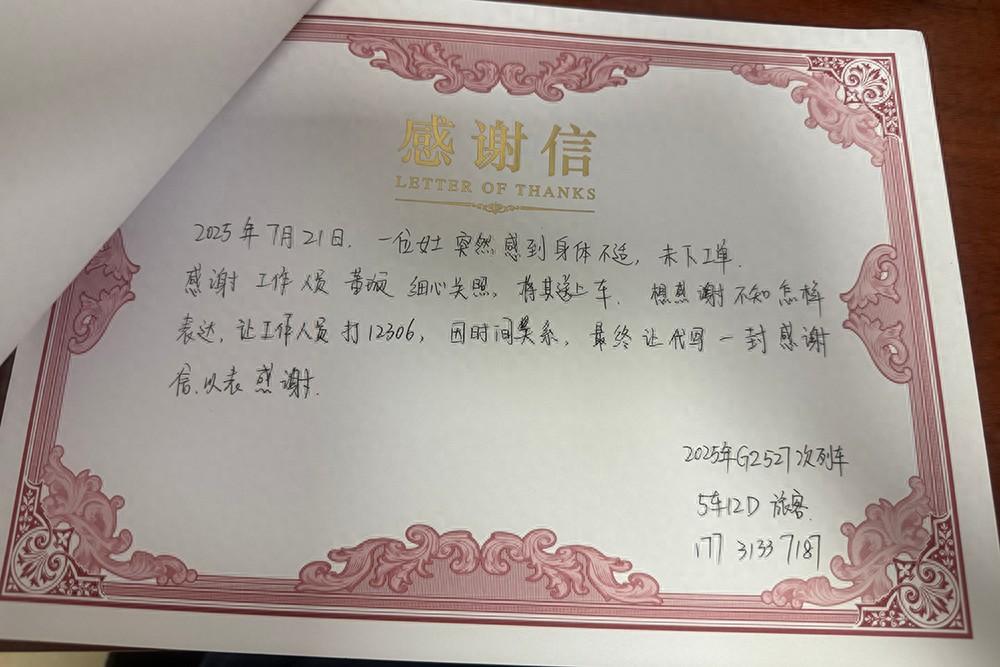 感谢信
LETTER OF THANKS
2025年7月21日. 一位女士突然感到身体不适, 未下工单.
感谢 工作人员 黄 细心关照, 将其送上车. 想感谢不知怎样
表达, 让工作人员打12306, 因时间关系, 最终让代写一封感谢
信, 以表感谢.
2025年G2527次列车
5车12D 旅客.
177 3133 7187